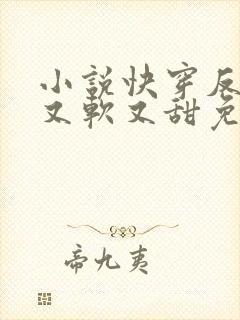 小説快穿反
又軟又甜免
帝九夷